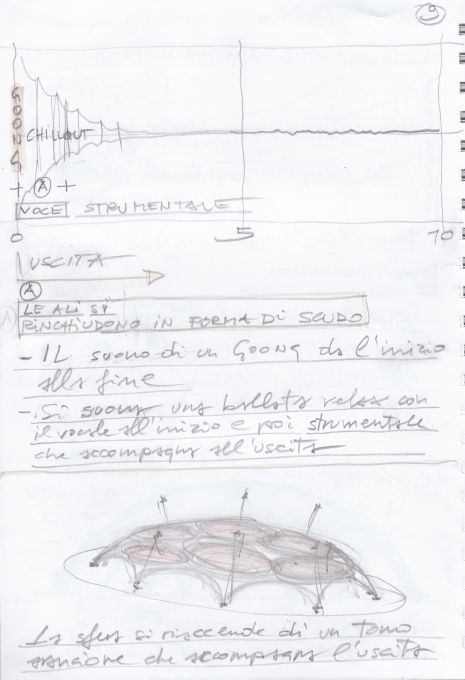 9
GOONG
CHILLOUT
+ A +
VOCE STRUMENTALE
0 5 10
USCITA
A
LE ALI SI
RINCHIUDONO IN FORMA DI SCUDO
- IL suono di un GOONG da l'inizio
alla fine
- Si suona una ballata relax con
il vocale all'inizio e poi strumentale
che accompagna all'uscita
La sfera si riaccende di un tomo
arancione che accompagna l'uscita